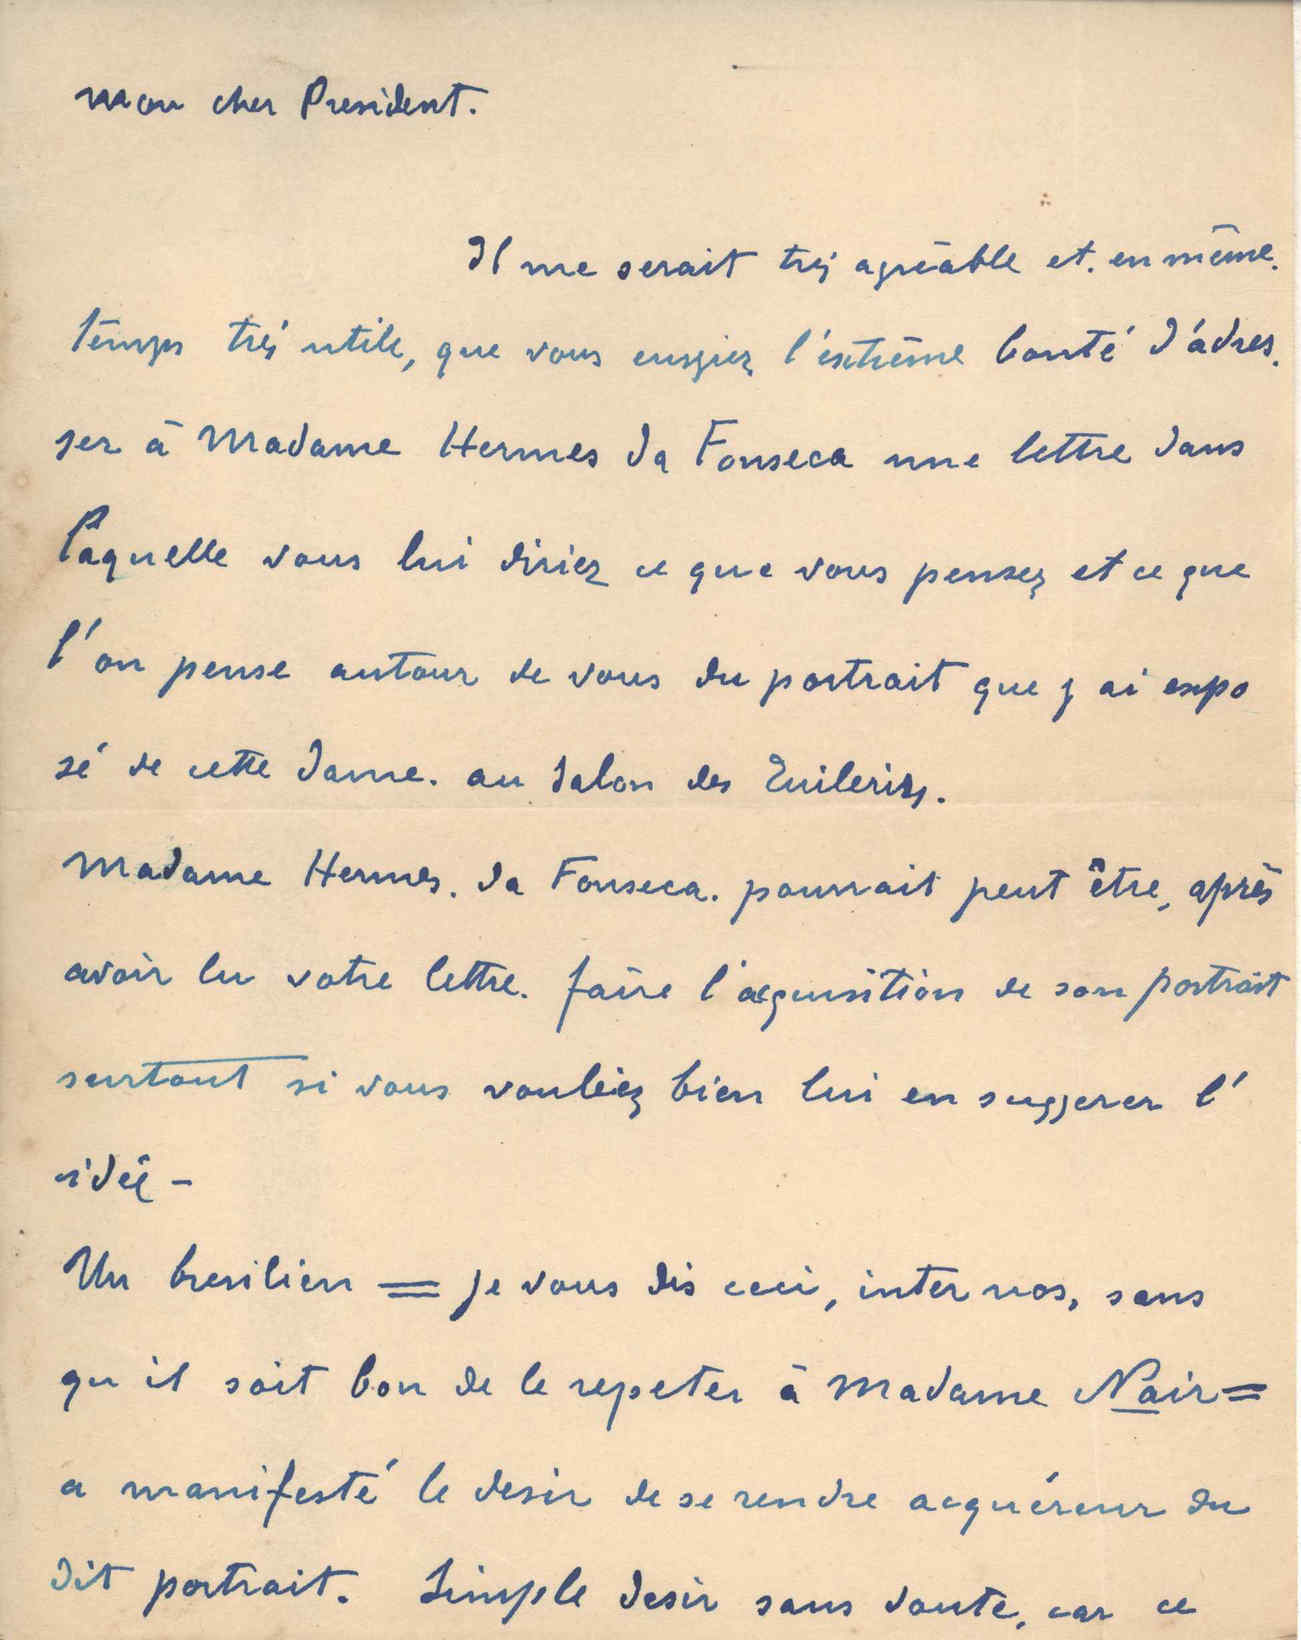 Mon cher President.
Il me serait très agréable et. en même.
temps très utile, que vous eussiez l'extrême bonté d'adres.
ser à Madame Hermes da Fonseca une lettre dans
laquelle vous lui diriez ce que vous pensez et ce que
l'on pense autour de vous du portrait que j ai expo
sé de cette dame. au Salon des Tuileries.
Madame Hermes. da Fonseca. pourrait peut être, après
avoir lu votre lettre. faire l'acquisition de son portrait
surtout si vous vouliez bien lui en suggerer l'
idée –
Un bresilien = je vous dis ceci, inter nos, sans
qu il soit bon de le repeter à Madame Nair =
a manifesté le desir de se rendre acquéreur du
dit portrait. Simple desir sans doute, car ce